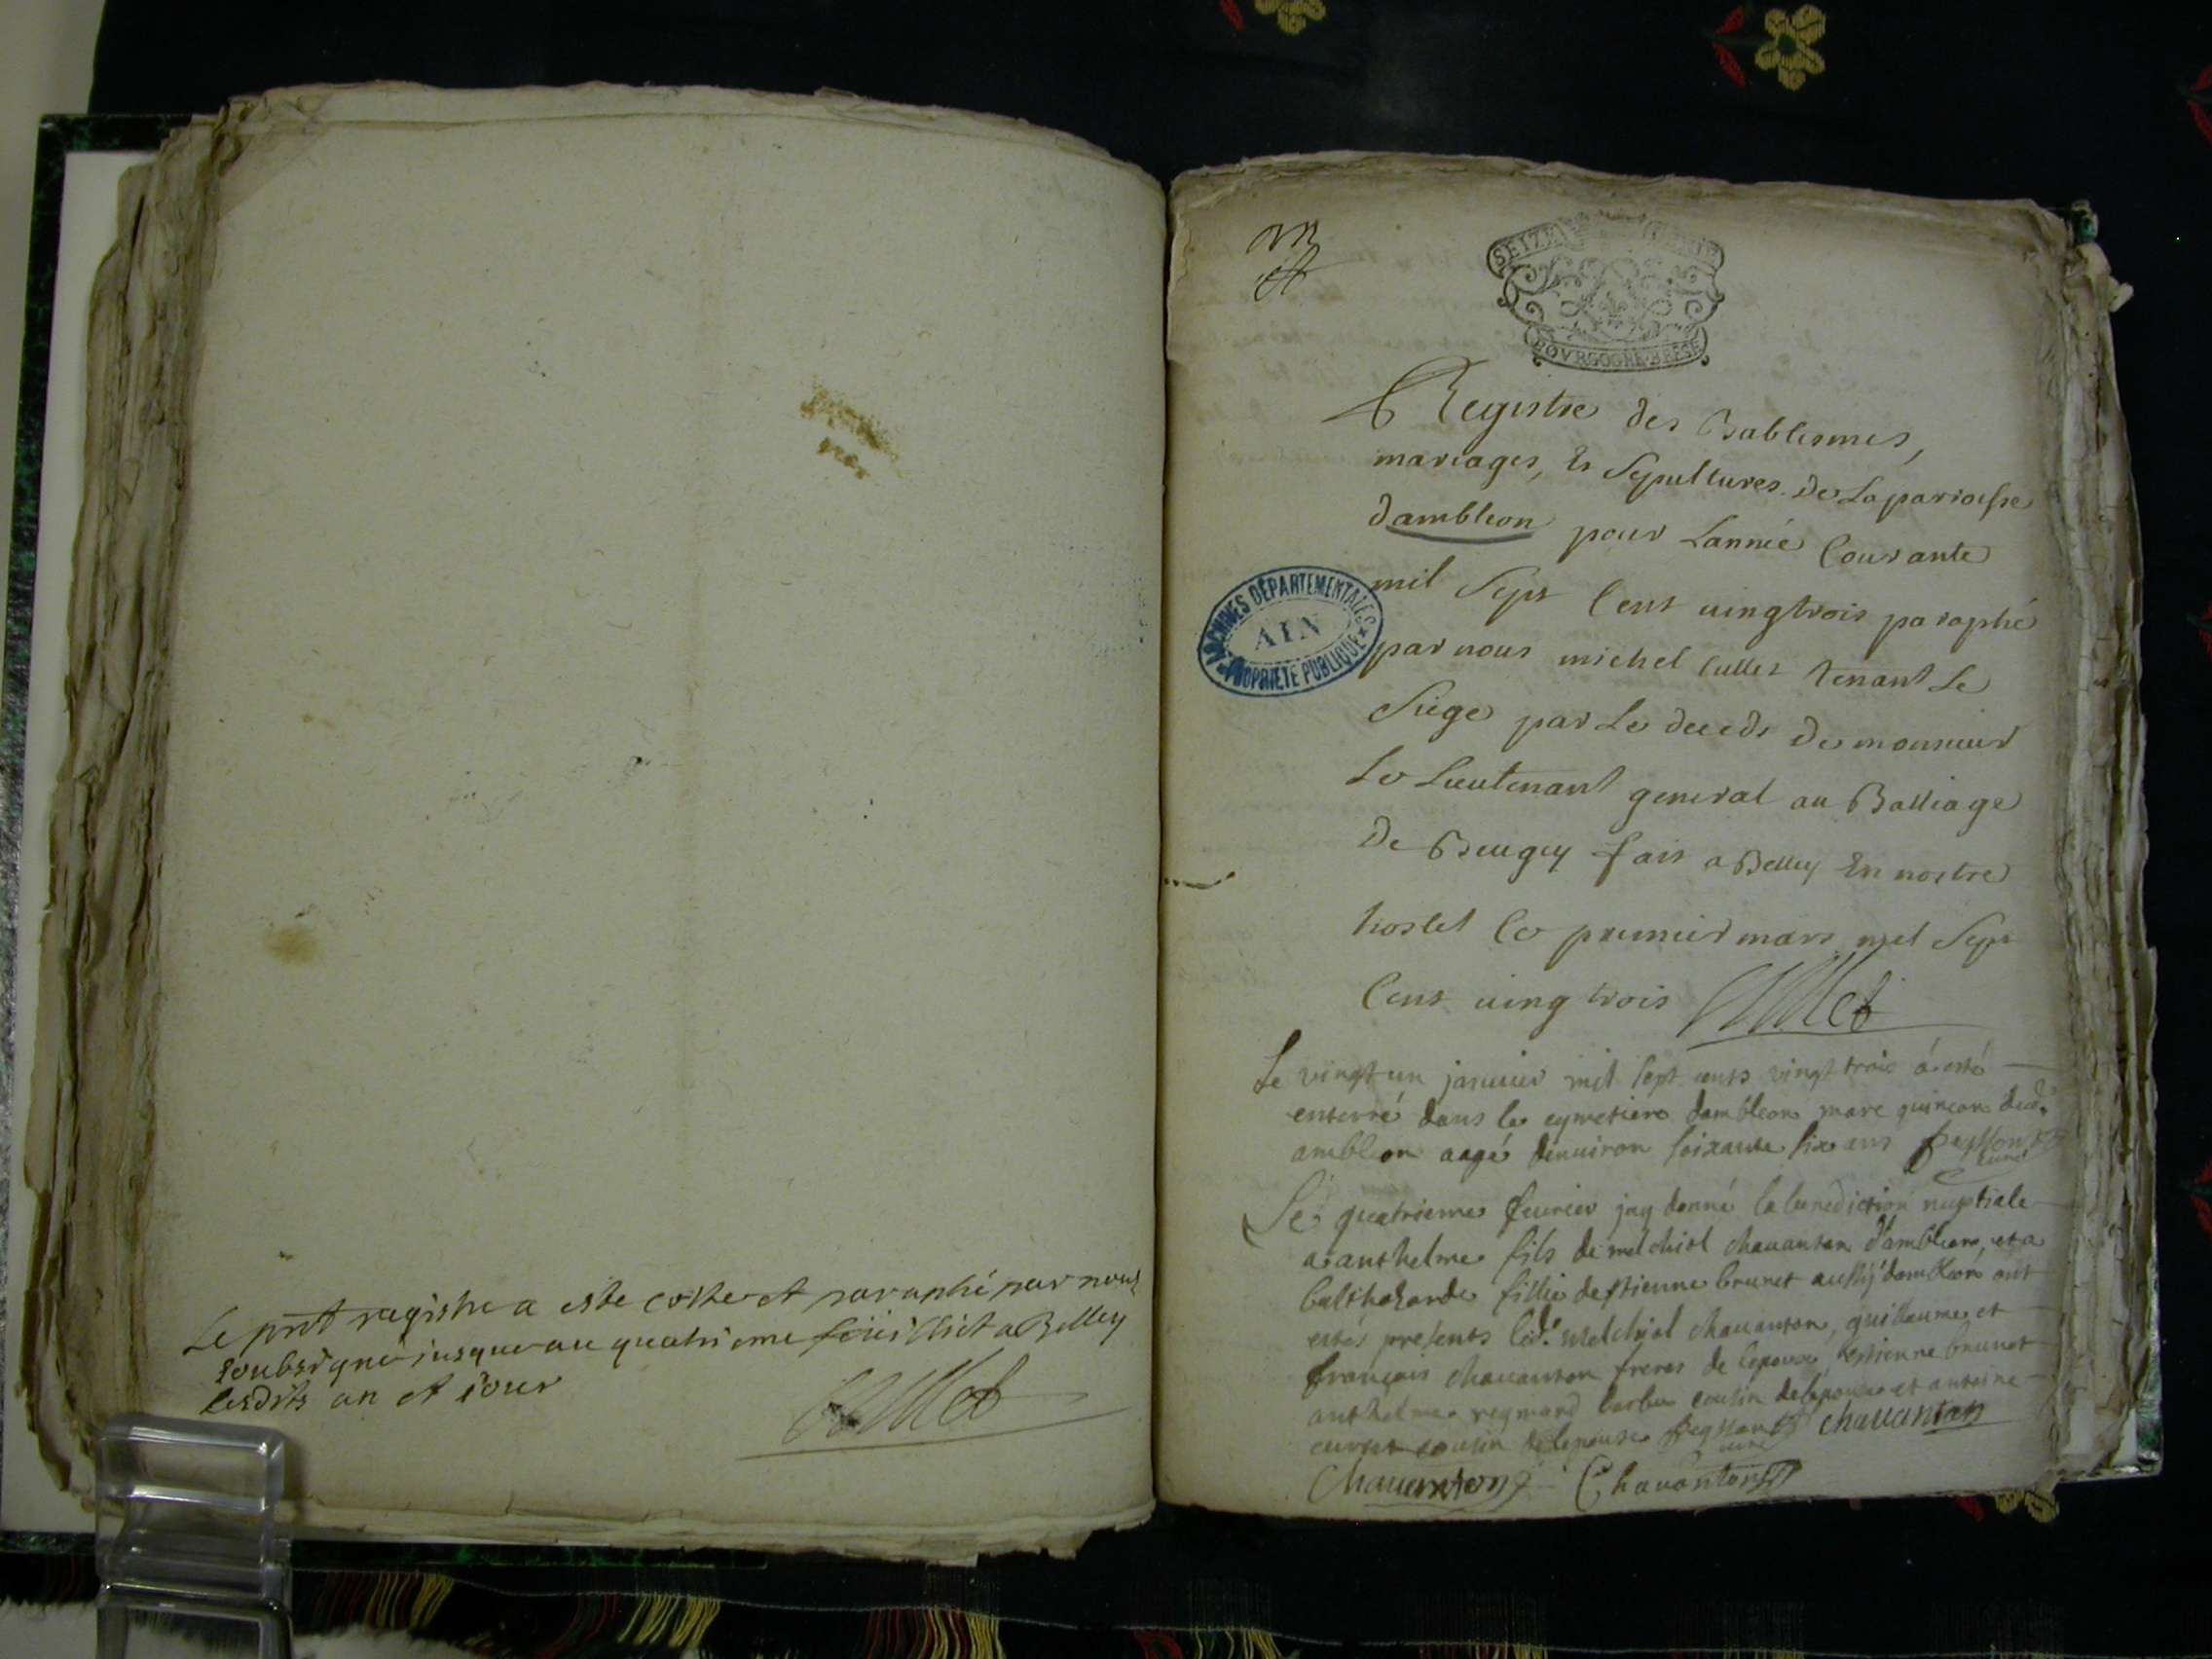 Le pnt registre a este cotte et paraphé par nous
soubsigné jusque au quatrieme feüillict a Belley
lesdits an et jour
Cullet
SEIZE
BOVRGOGNE·BRESSE
Registre des Batlesmes,
mariages, Et Sepultures de La paroisse
dambleon pour Lannée Courante
mil Sept Cent vingtrois paraphé
ARCHIVES DÉPARTEMENTALES
AIN
PROPRIÉTÉ PUBLIQUE
par nous michel Cullet tenant Le
Siege par Le deceds de monsieur
Le Lieutenant general au Balliage
De Beugey fait a Belley En nostre
hostel Ce premier mars mil Sept
Cent vingtrois Cullet
Le vingt un janvier mil sept cents vingt trois á esté
enterré dans le cymetiere dambleon marc quincon dud.
ambleon aagé denuiron soixante six ans
curé
Le quatrieme feurier jay donné la benediction nuptiale
a anthelme fils de melchiol chauanton d'ambleon, et a
balthazarde fillie destienne brunet aussy dambleon ont
estés presents led. melchiol chauanton, guillaume et
françois chauanton freres de lepoux, estienne brunet
anthelme reymand cousin de lepouse et antoine
curtet cousin de lepouse curé chauanton
Chauanton Chauanton